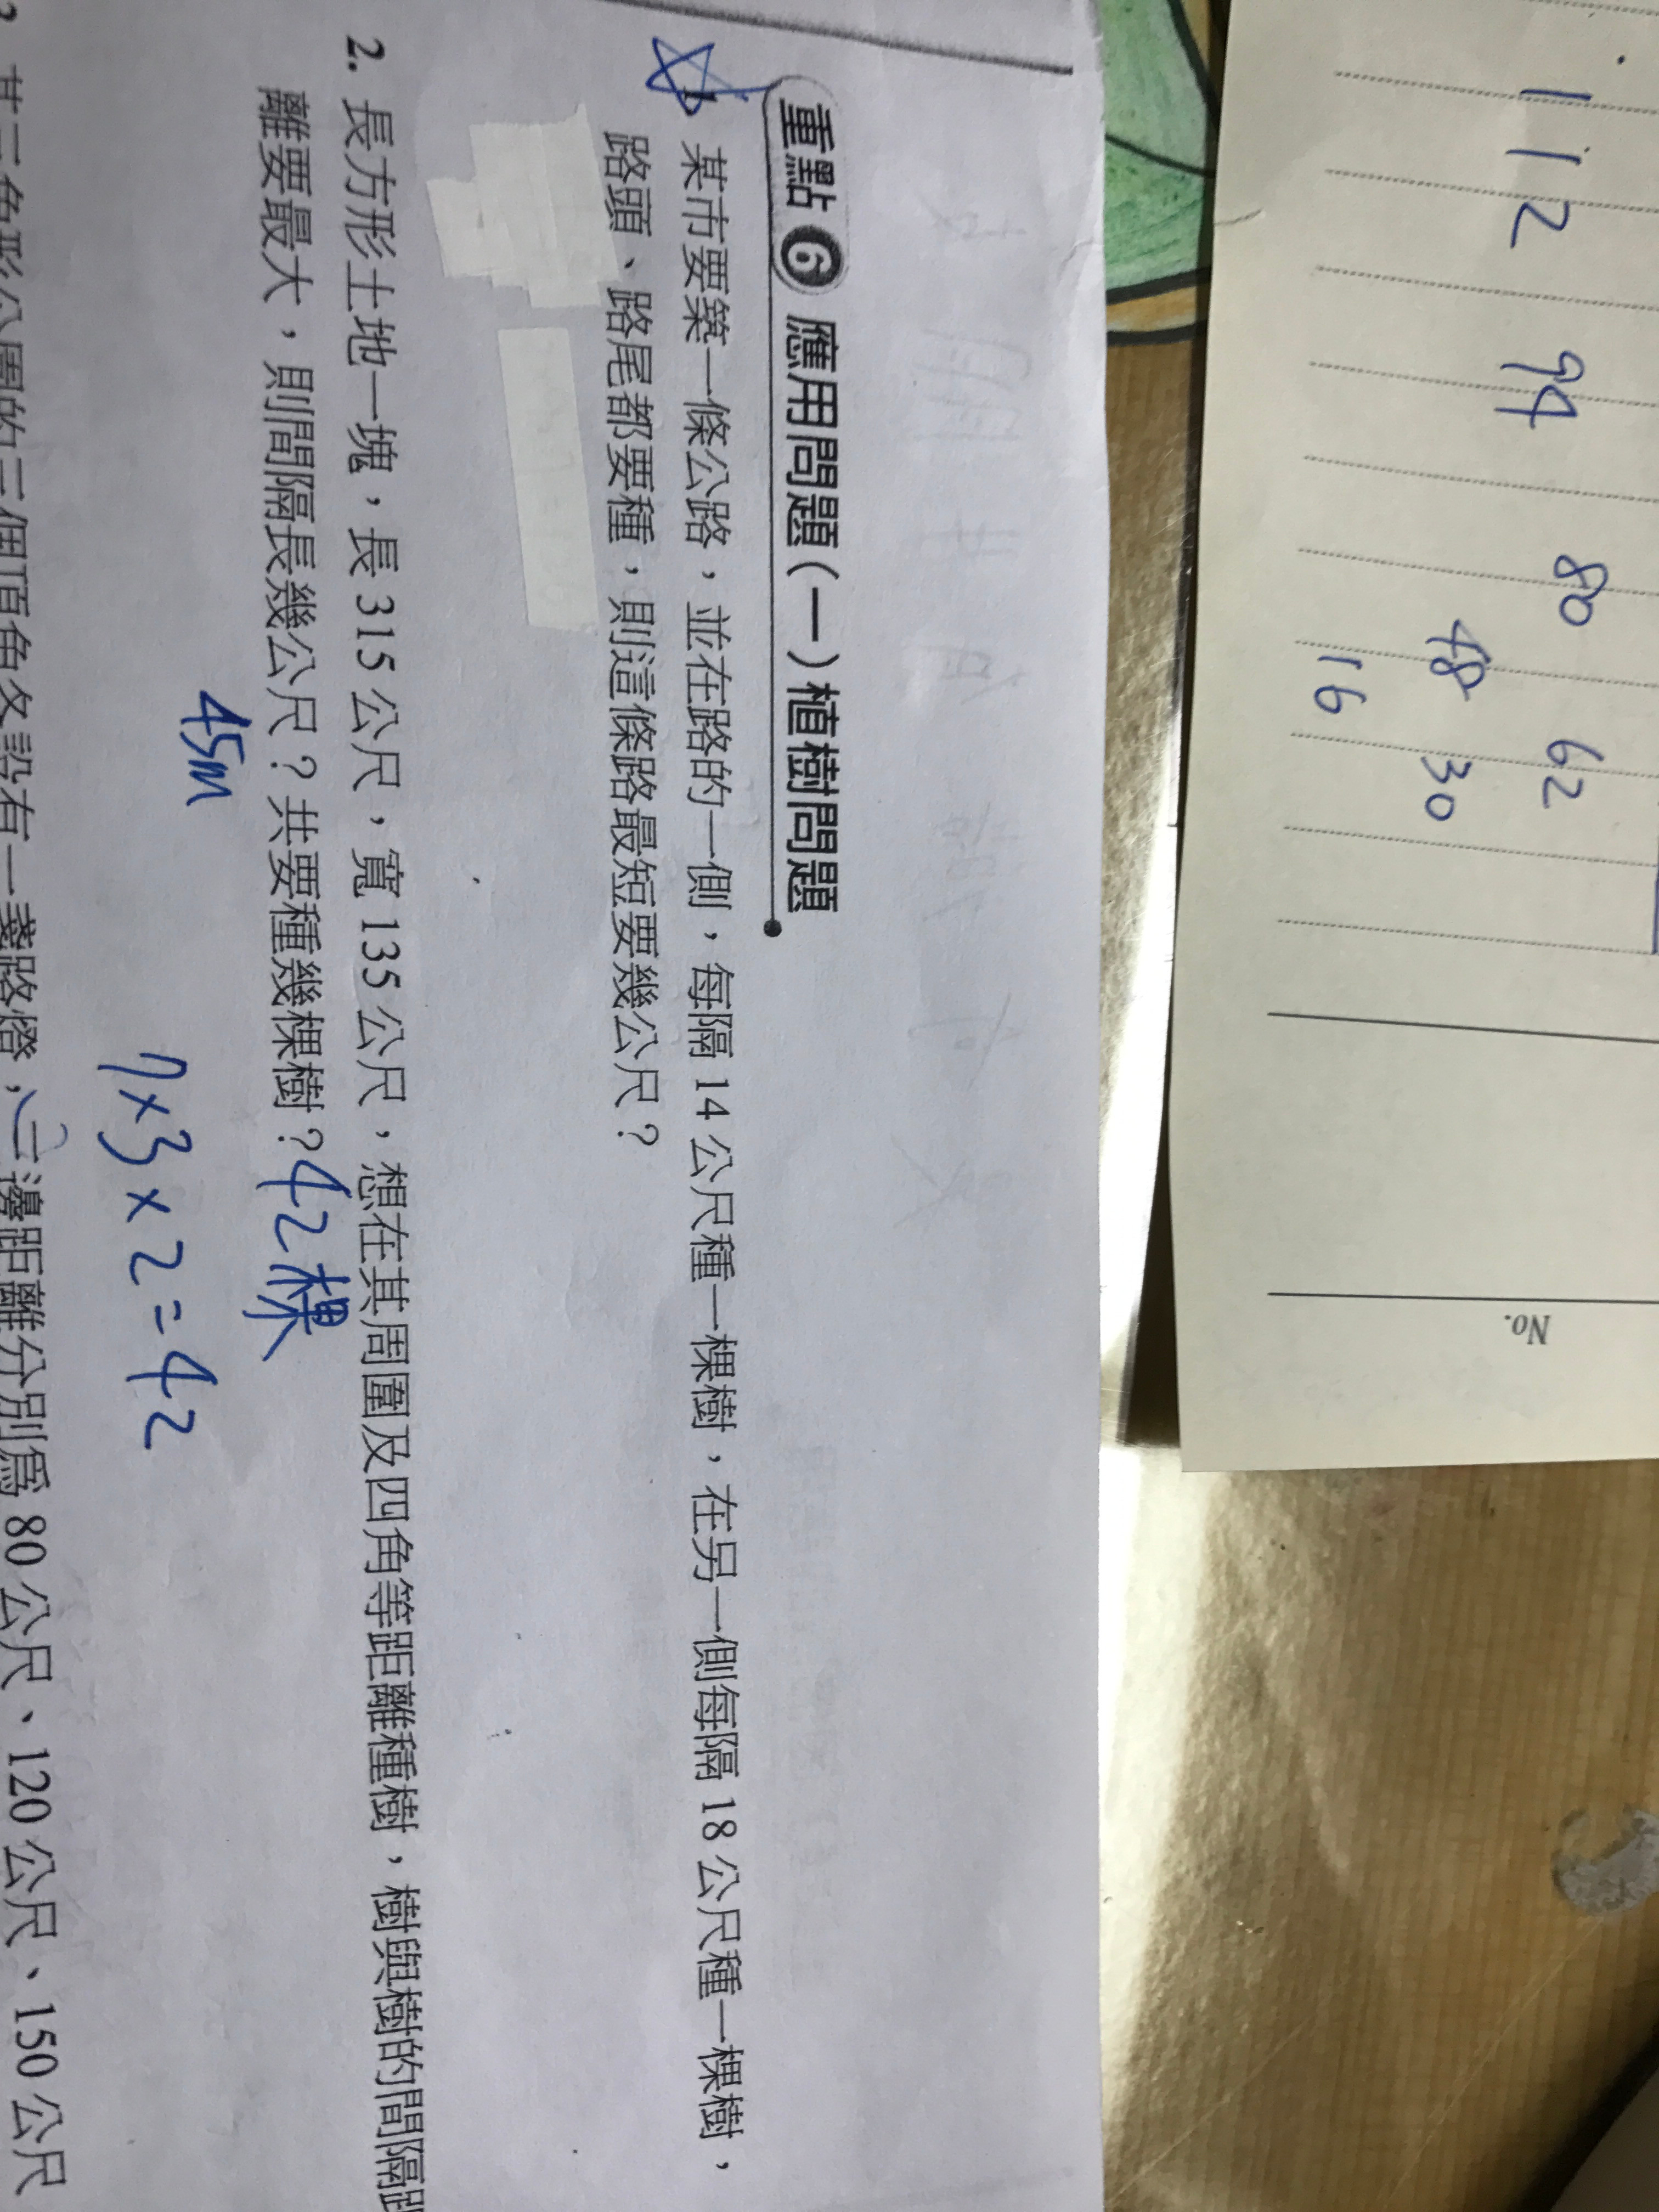 重點 6 應用問題(一)植樹問題
某市要築一條公路，並在路的一側，每隔 14 公尺種一棵樹，在另一側每隔 18 公尺種一棵樹，
路頭、路尾都要種，則這條路最短要幾公尺？
2. 長方形土地一塊，長 315 公尺，寬 135 公尺，想在其周圍及四角等距離種樹，樹與樹的間隔距
離要最大，則間隔長幾公尺？共要種幾棵樹？42棵
45m
7×3×2=42
某三角形公園的三個頂角各設有一盞路燈，三邊距離分別為 80 公尺、120 公尺、150 公尺
112 94 80 62
48 30
16
No.